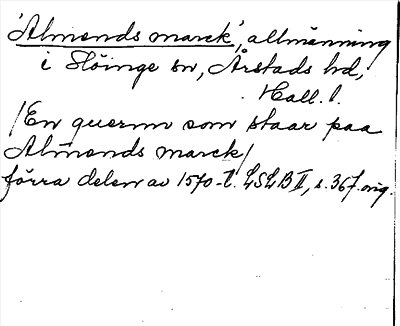 'Almends marck', allmänning
i Slöinge sn, Årstads hd,
Hall. l.
/En quernn som staar paa
Almends marck/
förra delen av 1570-t. LSLB II, s. 367. orig.